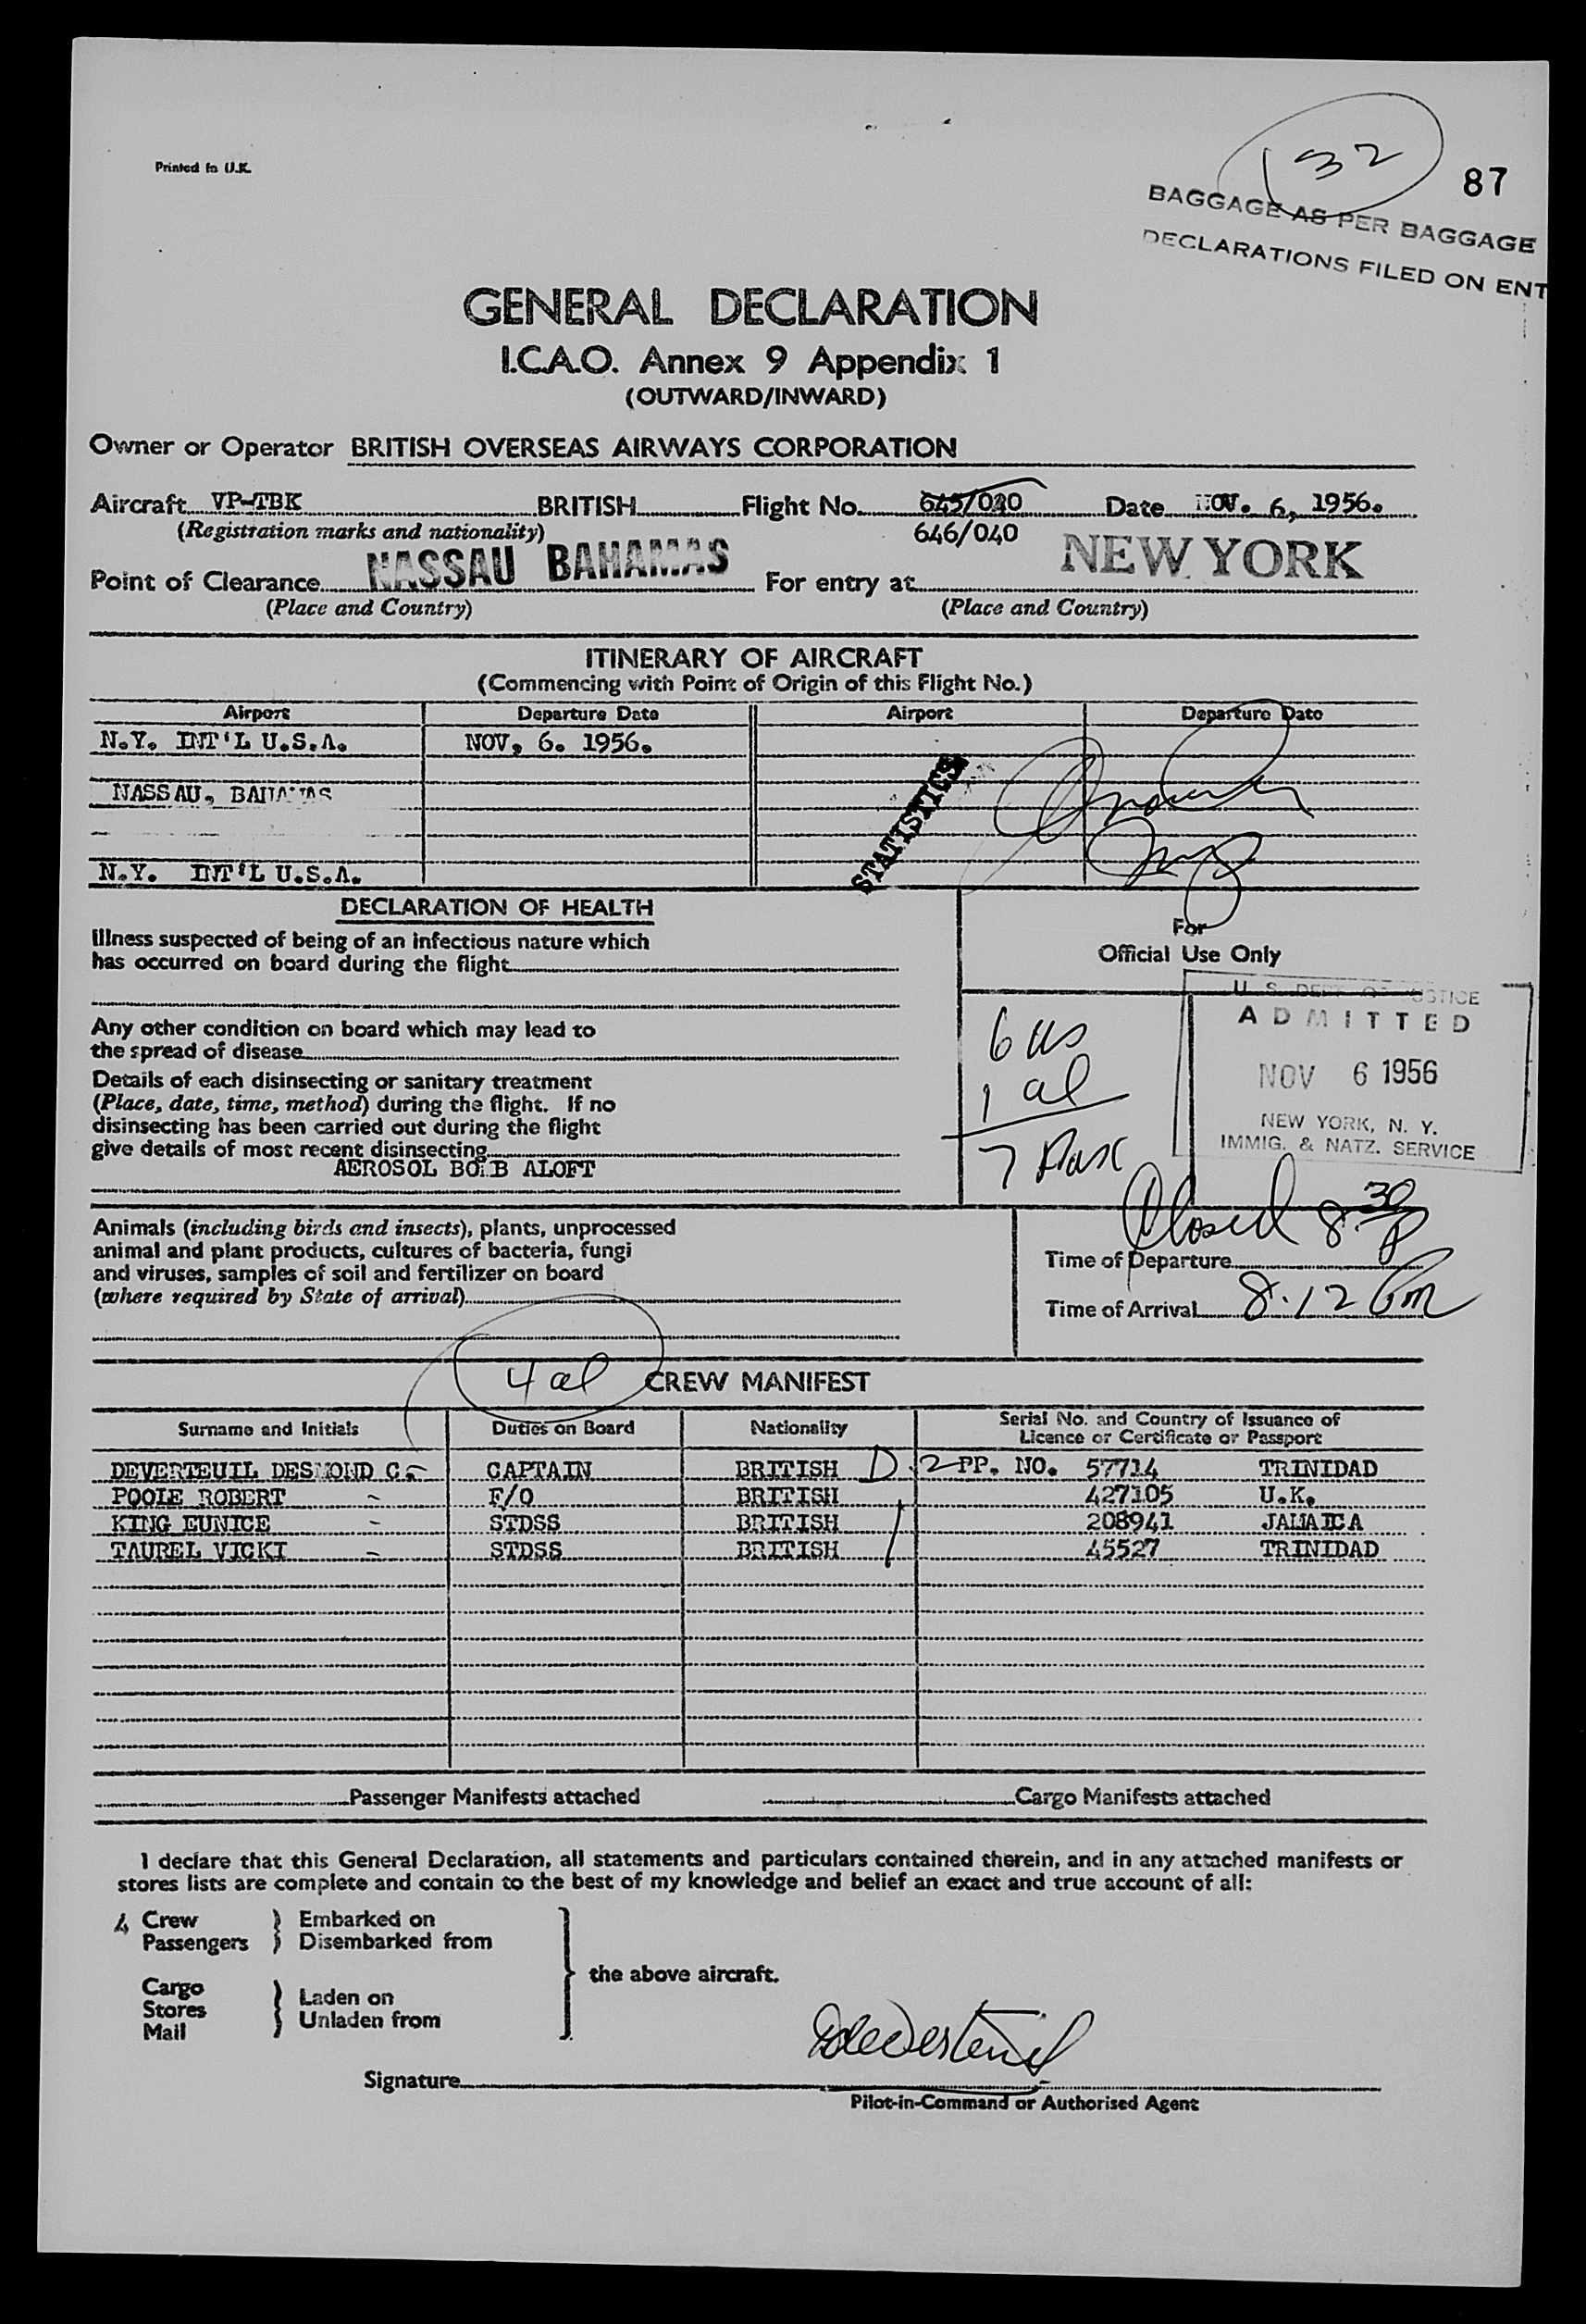 Printed in U.K.
132
87
BAGGAGE AS PER BAGGAGE
DECLARATIONS FILED ON ENT
GENERAL DECLARATION
I.C.A.O. Annex 9 Appendix 1
(OUTWARD/INWARD)
Owner or Operator BRITISH OVERSEAS AIRWAYS CORPORATION
Aircraft VP-TBK BRITISH Flight No. 645/040 Date NOV. 6, 1956.
(Registration marks and nationality) 646/040
Point of Clearance NASSAU BAHAMAS For entry at NEW YORK
(Place and Country) (Place and Country)
ITINERARY OF AIRCRAFT
(Commencing with Point of Origin of this Flight No.)
Airport Departure Date Airport Departure Date
N.Y. INT'L U.S.A. NOV, 6. 1956.
NASSAU, BAHAMAS
STATISTICS
N.Y. INT'L U.S.A.
DECLARATION OF HEALTH
For
Official Use Only
Illness suspected of being of an infectious nature which
has occurred on board during the flight
Any other condition on board which may lead to
the spread of disease
Details of each disinsecting or sanitary treatment
(Place, date, time, method) during the flight. If no
disinsecting has been carried out during the flight
give details of most recent disinsecting
AEROSOL BOMB ALOFT
6 us
1 al
7 Pass
U. S. DEPT. OF JUSTICE
ADMITTED
NOV 6 1956
NEW YORK, N. Y.
IMMIG. & NATZ. SERVICE
Animals (including birds and insects), plants, unprocessed
animal and plant products, cultures of bacteria, fungi
and viruses, samples of soil and fertilizer on board
(where required by State of arrival)
Closed 8.30 P
Time of Departure
Time of Arrival 8.12 Pm
4 al CREW MANIFEST
Surname and Initials Duties on Board Nationality Serial No. and Country of Issuance of
Licence or Certificate or Passport
DEVERTEUIL DESMOND C. - CAPTAIN BRITISH D.2 PP. NO. 57714 TRINIDAD
POOLE ROBERT - F/O BRITISH 427105 U.K.
KING EUNICE - STDSS BRITISH 208941 JAMAICA
TAUREL VICKI - STDSS BRITISH 45527 TRINIDAD
Passenger Manifests attached Cargo Manifests attached
I declare that this General Declaration, all statements and particulars contained therein, and in any attached manifests or
stores lists are complete and contain to the best of my knowledge and belief an exact and true account of all:
4 Crew } Embarked on
Passengers } Disembarked from
the above aircraft.
Cargo
Stores } Laden on
Mail } Unladen from
Signature
Pilot-in-Command or Authorised Agent